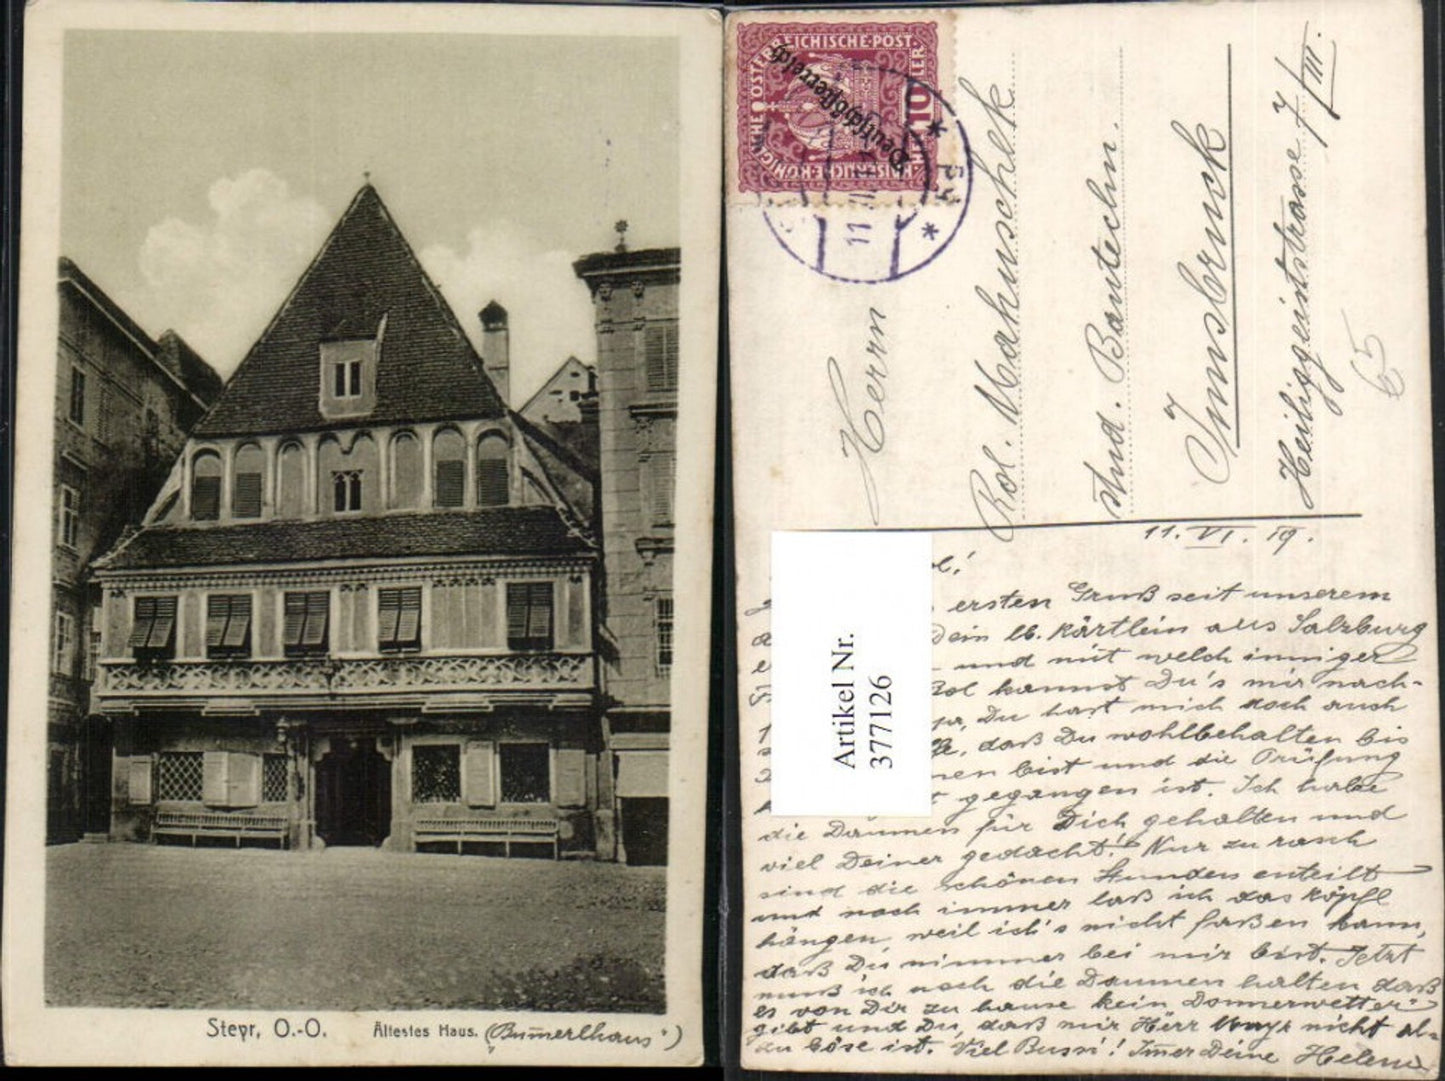 Steyr, O.-O. Ältestes Haus. (Bum̄erlhaus)
KAISERLICHE KÖNIGLICHE ÖSTERREICHISCHE POST
10 HELLER
Deutschösterreich
11
Herrn
Rol. Mahuschek
stud. Bautechn.
Innsbruck
Heiliggeiststrasse 7/III.
65
Artikel Nr.
377126
11. VI. 19.
ersten Gruß seit unserem
Dein lb. Kärtlein aus Salzburg
und mit welch inniger
kannst Du's mir nach-
Du hast mich doch auch
daß Du wohlbehalten bis
bist und die Prüfung
gegangen ist. Ich habe
die Daumen für Dich gehalten und
viel Deiner gedacht! Nur zu rasch
sind die schönen Stunden enteilt
und noch immer laß ich das Köpfl
hängen, weil ich's nicht faßen kann,
daß Du nimmer bei mir bist. Jetzt
muß ich noch die Daumen halten daß
es von Dir zu hause kein Donnerwetter
gibt und Du, daß mir Herr Mayr nicht all-
zu böse ist. Viel Bussi! Im̄er Deine Helene